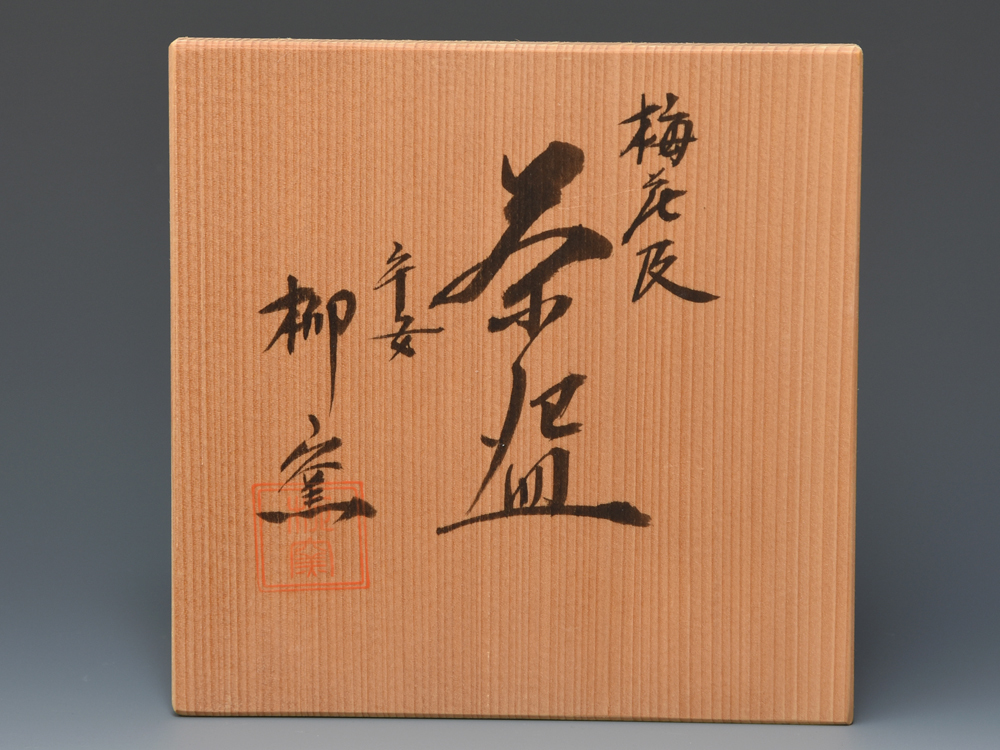 梅花皮
茶盌
平安
柳窯